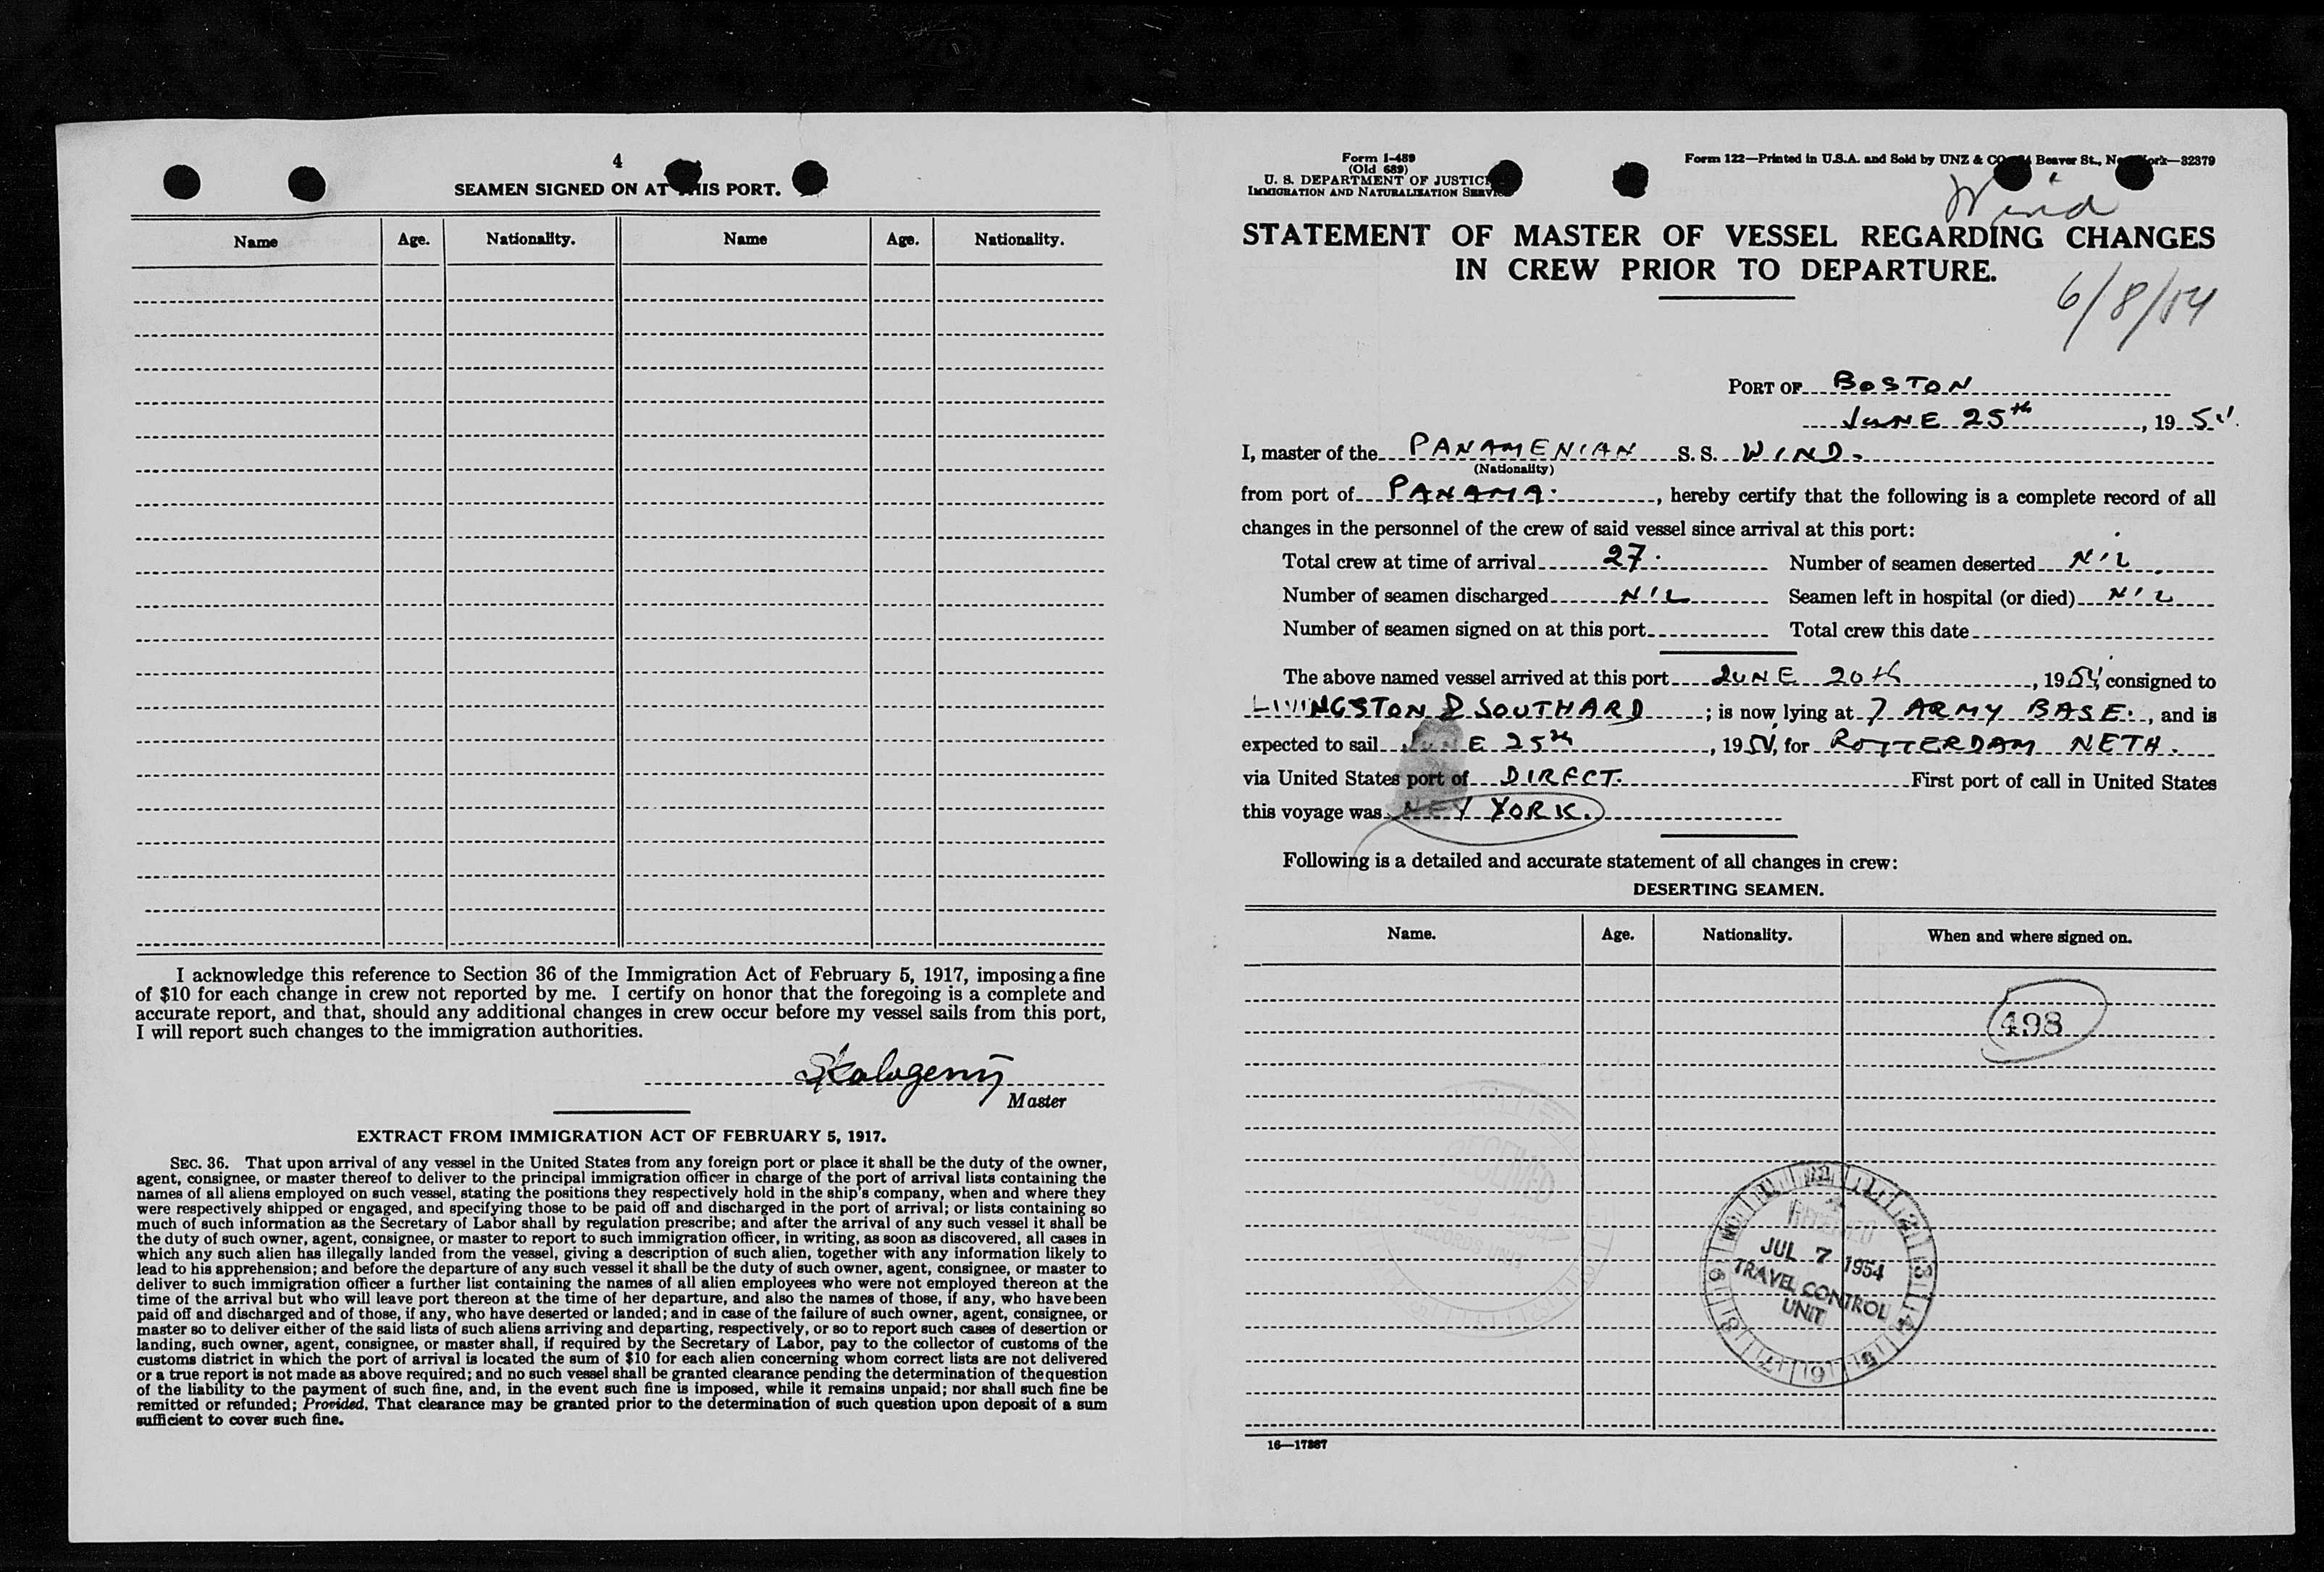 4
SEAMEN SIGNED ON AT THIS PORT.
Name Age. Nationality. Name Age. Nationality.
I acknowledge this reference to Section 36 of the Immigration Act of February 5, 1917, imposing a fine
of $10 for each change in crew not reported by me. I certify on honor that the foregoing is a complete and
accurate report, and that, should any additional changes in crew occur before my vessel sails from this port,
I will report such changes to the immigration authorities.
Master
EXTRACT FROM IMMIGRATION ACT OF FEBRUARY 5, 1917.
SEC. 36. That upon arrival of any vessel in the United States from any foreign port or place it shall be the duty of the owner,
agent, consignee, or master thereof to deliver to the principal immigration officer in charge of the port of arrival lists containing the
names of all aliens employed on such vessel, stating the positions they respectively hold in the ship's company, when and where they
were respectively shipped or engaged, and specifying those to be paid off and discharged in the port of arrival; or lists containing so
much of such information as the Secretary of Labor shall by regulation prescribe; and after the arrival of any such vessel it shall be
the duty of such owner, agent, consignee, or master to report to such immigration officer, in writing, as soon as discovered, all cases in
which any such alien has illegally landed from the vessel, giving a description of such alien, together with any information likely to
lead to his apprehension; and before the departure of any such vessel it shall be the duty of such owner, agent, consignee, or master to
deliver to such immigration officer a further list containing the names of all alien employees who were not employed thereon at the
time of the arrival but who will leave port thereon at the time of her departure, and also the names of those, if any, who have been
paid off and discharged and of those, if any, who have deserted or landed; and in case of the failure of such owner, agent, consignee, or
master so to deliver either of the said lists of such aliens arriving and departing, respectively, or so to report such cases of desertion or
landing, such owner, agent, consignee, or master shall, if required by the Secretary of Labor, pay to the collector of customs of the
customs district in which the port of arrival is located the sum of $10 for each alien concerning whom correct lists are not delivered
or a true report is not made as above required; and no such vessel shall be granted clearance pending the determination of the question
of the liability to the payment of such fine, and, in the event such fine is imposed, while it remains unpaid; nor shall such fine be
remitted or refunded; Provided, That clearance may be granted prior to the determination of such question upon deposit of a sum
sufficient to cover such fine.
Form I-489
(Old 689)
U. S. DEPARTMENT OF JUSTICE
IMMIGRATION AND NATURALIZATION SERVICE
Form 122—Printed in U.S.A. and Sold by UNZ & CO. Beaver St., New York—32379
Wind
STATEMENT OF MASTER OF VESSEL REGARDING CHANGES
IN CREW PRIOR TO DEPARTURE.
6/8/54
PORT OF BOSTON
JUNE 25th, 1954
I, master of the PANAMENIAN S. S. WIND.
(Nationality)
from port of PANAMA., hereby certify that the following is a complete record of all
changes in the personnel of the crew of said vessel since arrival at this port:
Total crew at time of arrival 27. Number of seamen deserted NIL
Number of seamen discharged NIL Seamen left in hospital (or died) NIL
Number of seamen signed on at this port Total crew this date
The above named vessel arrived at this port JUNE 20th, 1954, consigned to
LIVINGSTON & SOUTHARD; is now lying at 7 ARMY BASE., and is
expected to sail JUNE 25th, 1954, for ROTTERDAM NETH.
via United States port of DIRECT. First port of call in United States
this voyage was NEW YORK.
Following is a detailed and accurate statement of all changes in crew:
DESERTING SEAMEN.
Name. Age. Nationality. When and where signed on.
498
RECEIVED
1954
RECORDS UNIT
RECEIVED
JUL 7 1954
TRAVEL CONTROL
UNIT
16—17887